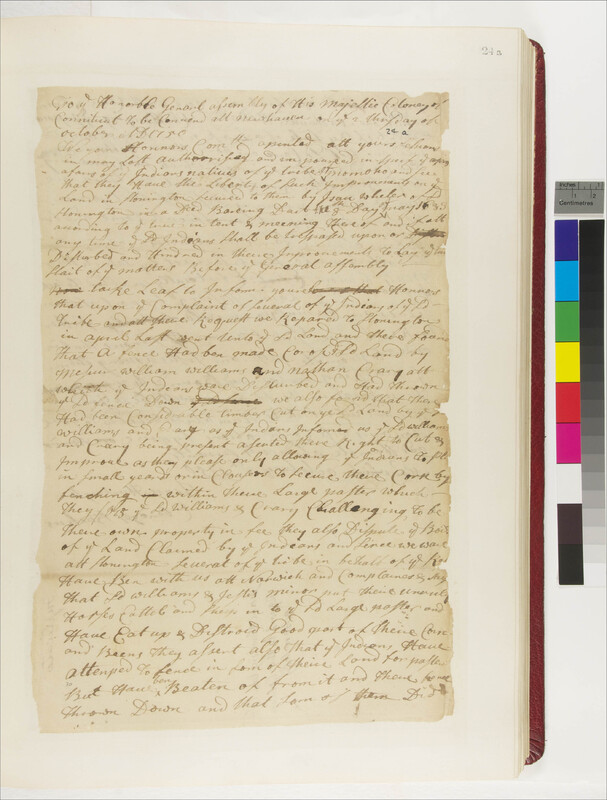 24a
To ye Honorble Genaral assembly of His majestie Colonay of
Conniticut To be Conuend att newhauen on ye 2 thirsday of
octobr AD 1750
24a
Honnors Comtt apointed att yours session
in may Last Authorised and impowred to inspect ye
afairs of ye Indians natiues of ye tribe and see
that they Haue the Liberty of such Improuements on ye
Land in Stonington secured to them by Isaac wheler of sd
Stonington in a Deed Baring Date ye Day
acording to ye true intent & meening there of and if att
any time ye sd Indians shall be trespassed upon or
Disturbed and Hindred in theire Improuements to Lay ye
stait of ye matters Before ye General assembly
take Leaf to Inform your Honnors
that upon ye Complaint of seueral of ye Indians of ye sd
tribe and att there Request we Repared to Stonington
in april Last went unto ye sd Land and there found
that A fence Had ben made Cros ye sd Land by
messrs william williams and nathan Crary att
which ye Indians ware Disturbed and Had thrown
ye sd fence Down we also found that there
Had been Considerable timber Cutt on ye sd Land by ye sd
williams and Crary as ye Indians Informed us ye sd williams
and Crary being present aserted there Right to Cutt &
Improue as they please only allowing ye Indians to plant
in small yards or in Closers to secure there Corn by
fenching in within there Large paster which
they ye sd Williams & Crary Challenging to be
there own property in fee they also Dispute ye
of ye Land Claimed by ye Indians and since we ware
att Stonington seueral of ye tribe in behalf of ye
Haue Ben with us att Norwich and Complaned & say
that sd williams & minor put there
Horses Cattel and sheep in to ye sd Large paster and
Haue Eat up & Distroid Good part of theire Corn
and Beens they asert also that ye Indians Haue
attemped to fence in som of theire Land for paster
But Haue ben Beaten of from it and there fence
thrown Down and that som of them Did